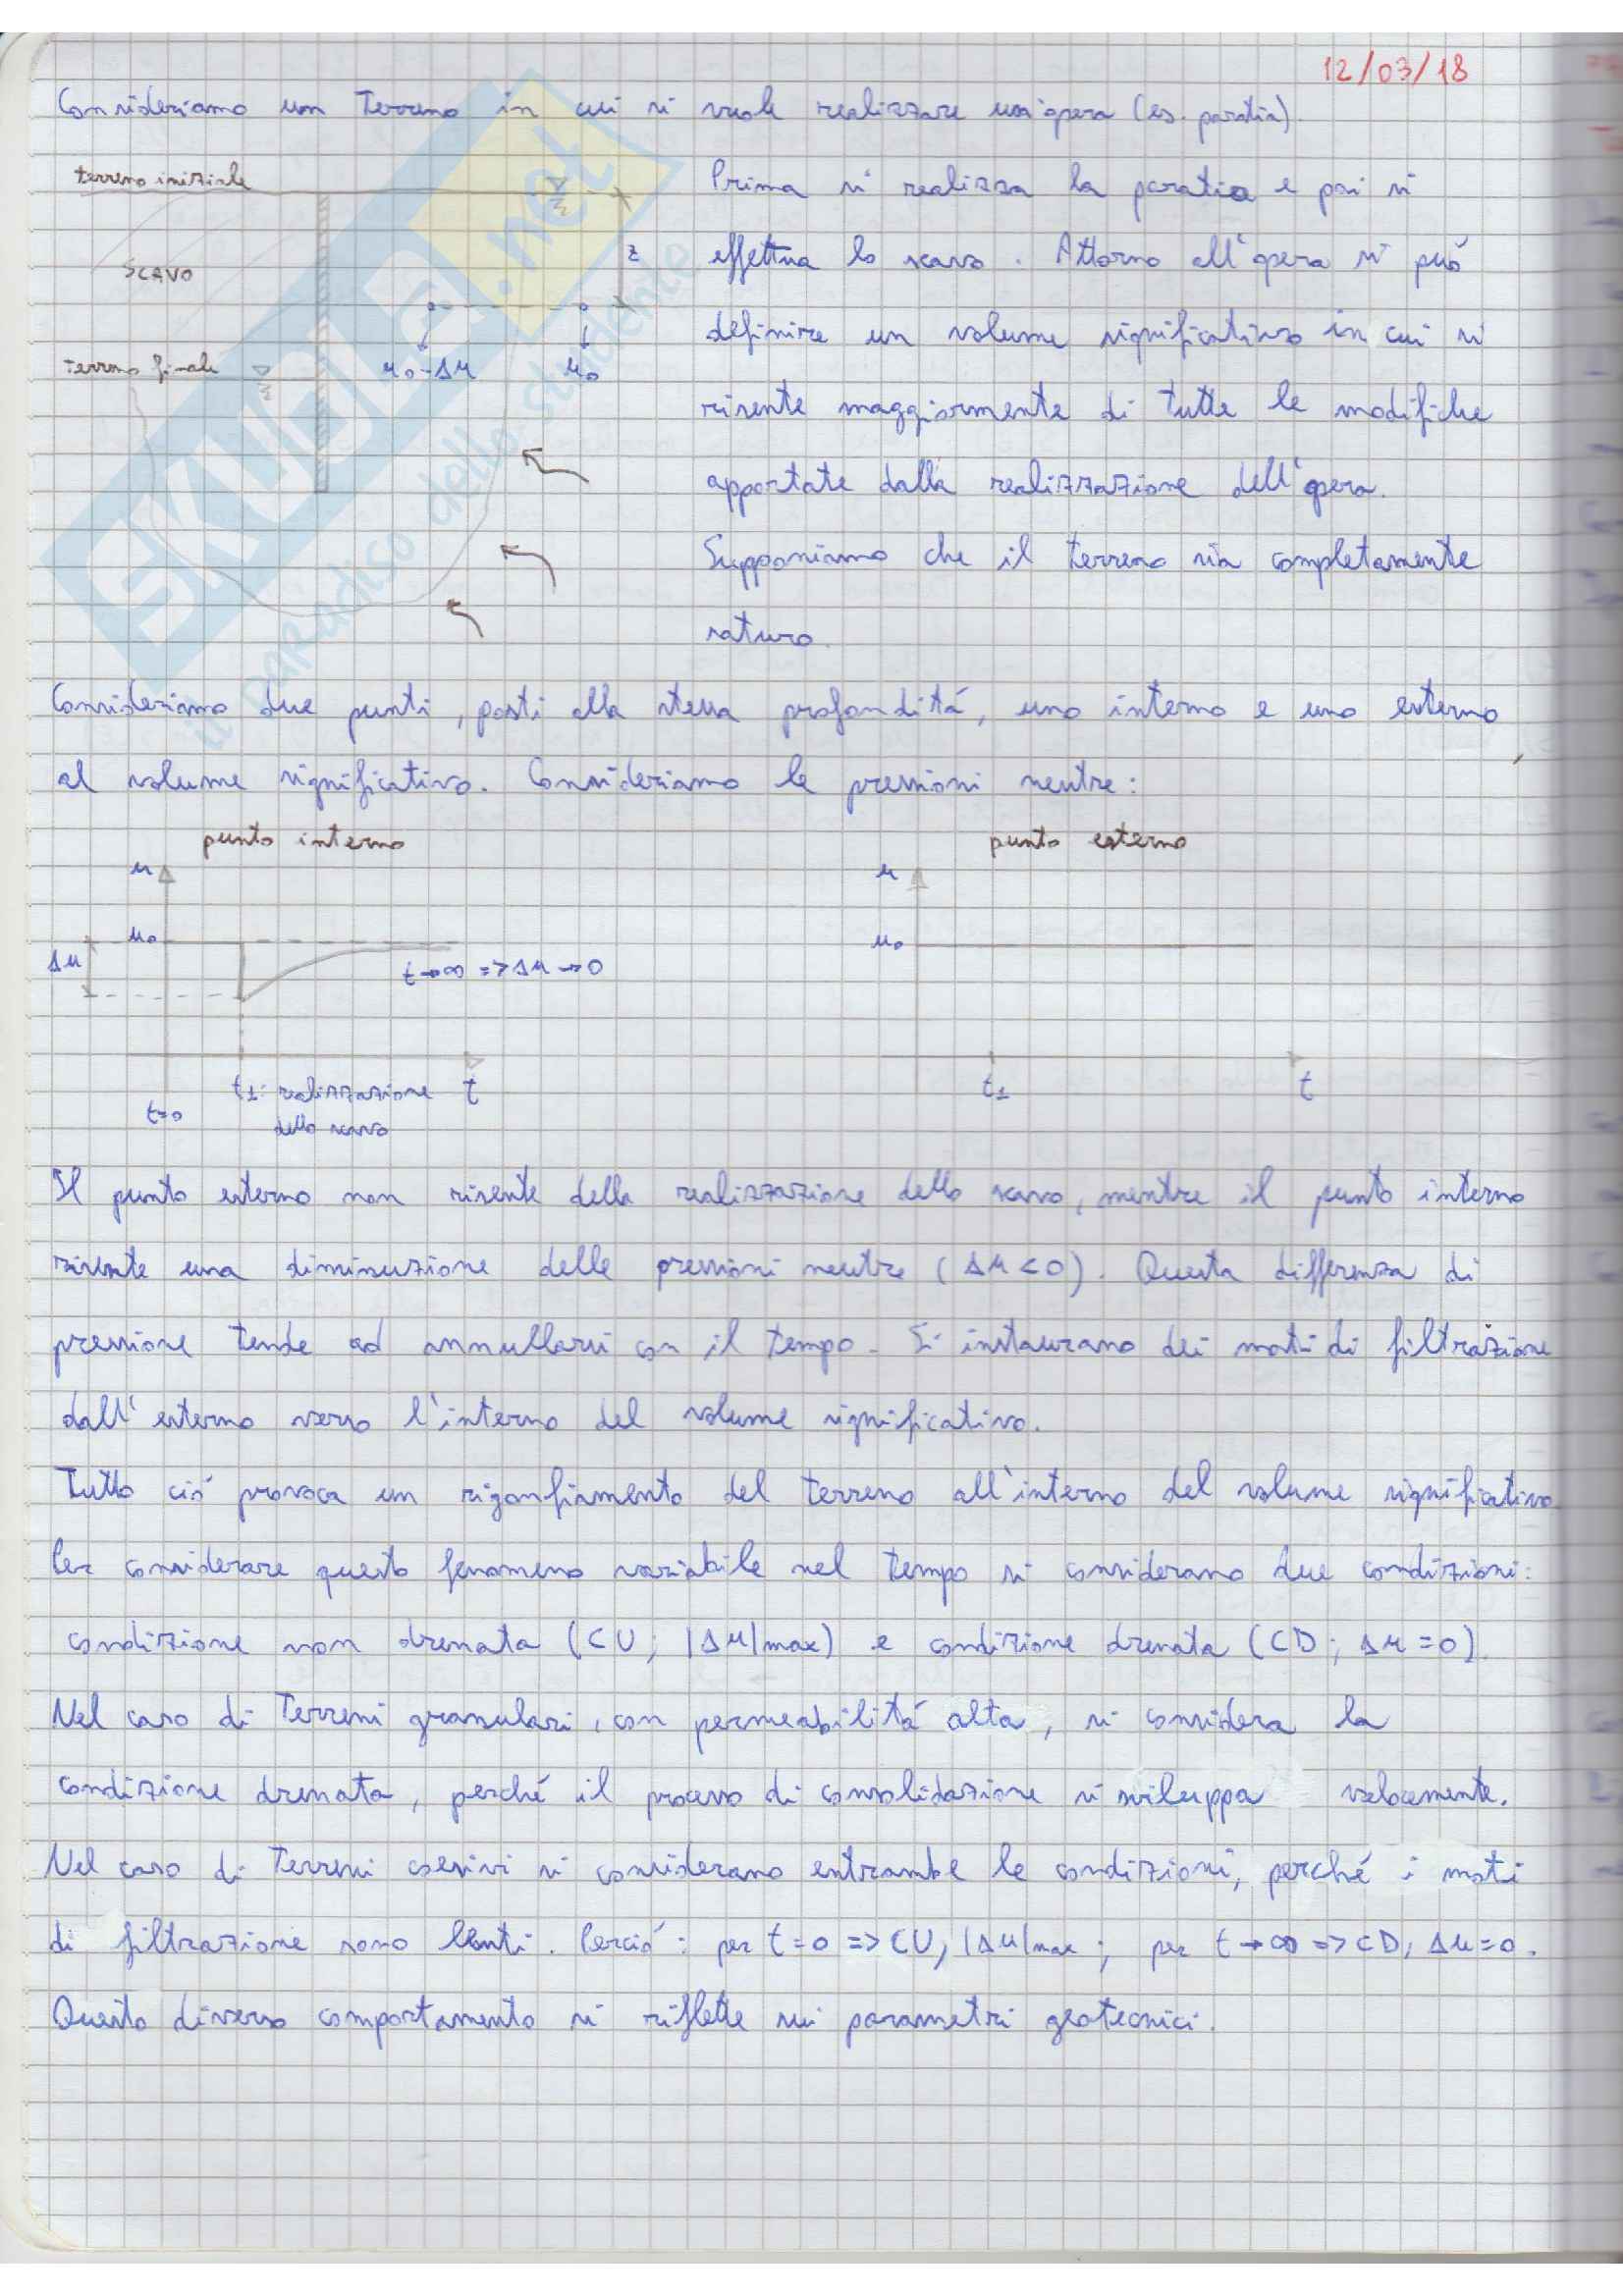 12/03/18
Consideriamo un terreno in cui si vuole realizzare un'opera (es. paratia).
terreno iniziale
Prima si realizza la paratia e poi si
z
effettua lo scavo. Attorno all'opera si può
SCAVO
definire un volume significativo in cui si
terreno finale
u0-Δu
u0
risente maggiormente di tutte le modifiche
apportate dalla realizzazione dell'opera.
Supponiamo che il terreno sia completamente
saturo.
SKUOLA.net
il paradiso dello studente
Consideriamo due punti, posti alla stessa profondità, uno interno e uno esterno
al volume significativo. Consideriamo le pressioni neutre:
punto interno
punto esterno
u
u
u0
u0
Δu
t→∞ => Δu→0
t1: realizzazione
dello scavo
t
t1
t
t=0
Il punto esterno non risente della realizzazione dello scavo, mentre il punto interno
risente una diminuzione delle pressioni neutre (Δu<0). Questa differenza di
pressione tende ad annullarsi con il tempo. Si instaurano dei moti di filtrazione
dall'esterno verso l'interno del volume significativo.
Tutto ciò provoca un rigonfiamento del terreno all'interno del volume significativo.
Per considerare questo fenomeno variabile nel tempo si considerano due condizioni:
condizione non drenata (CU; |Δu|max) e condizione drenata (CD; Δu=0).
Nel caso di terreni granulari, con permeabilità alta, si considera la
condizione drenata, perché il processo di consolidazione si sviluppa velocemente.
Nel caso di terreni coesivi si considerano entrambe le condizioni, perché i moti
di filtrazione sono lenti. Perciò: per t=0 => CU, |Δu|max; per t→∞ => CD, Δu=0.
Questo diverso comportamento si riflette sui parametri geotecnici.